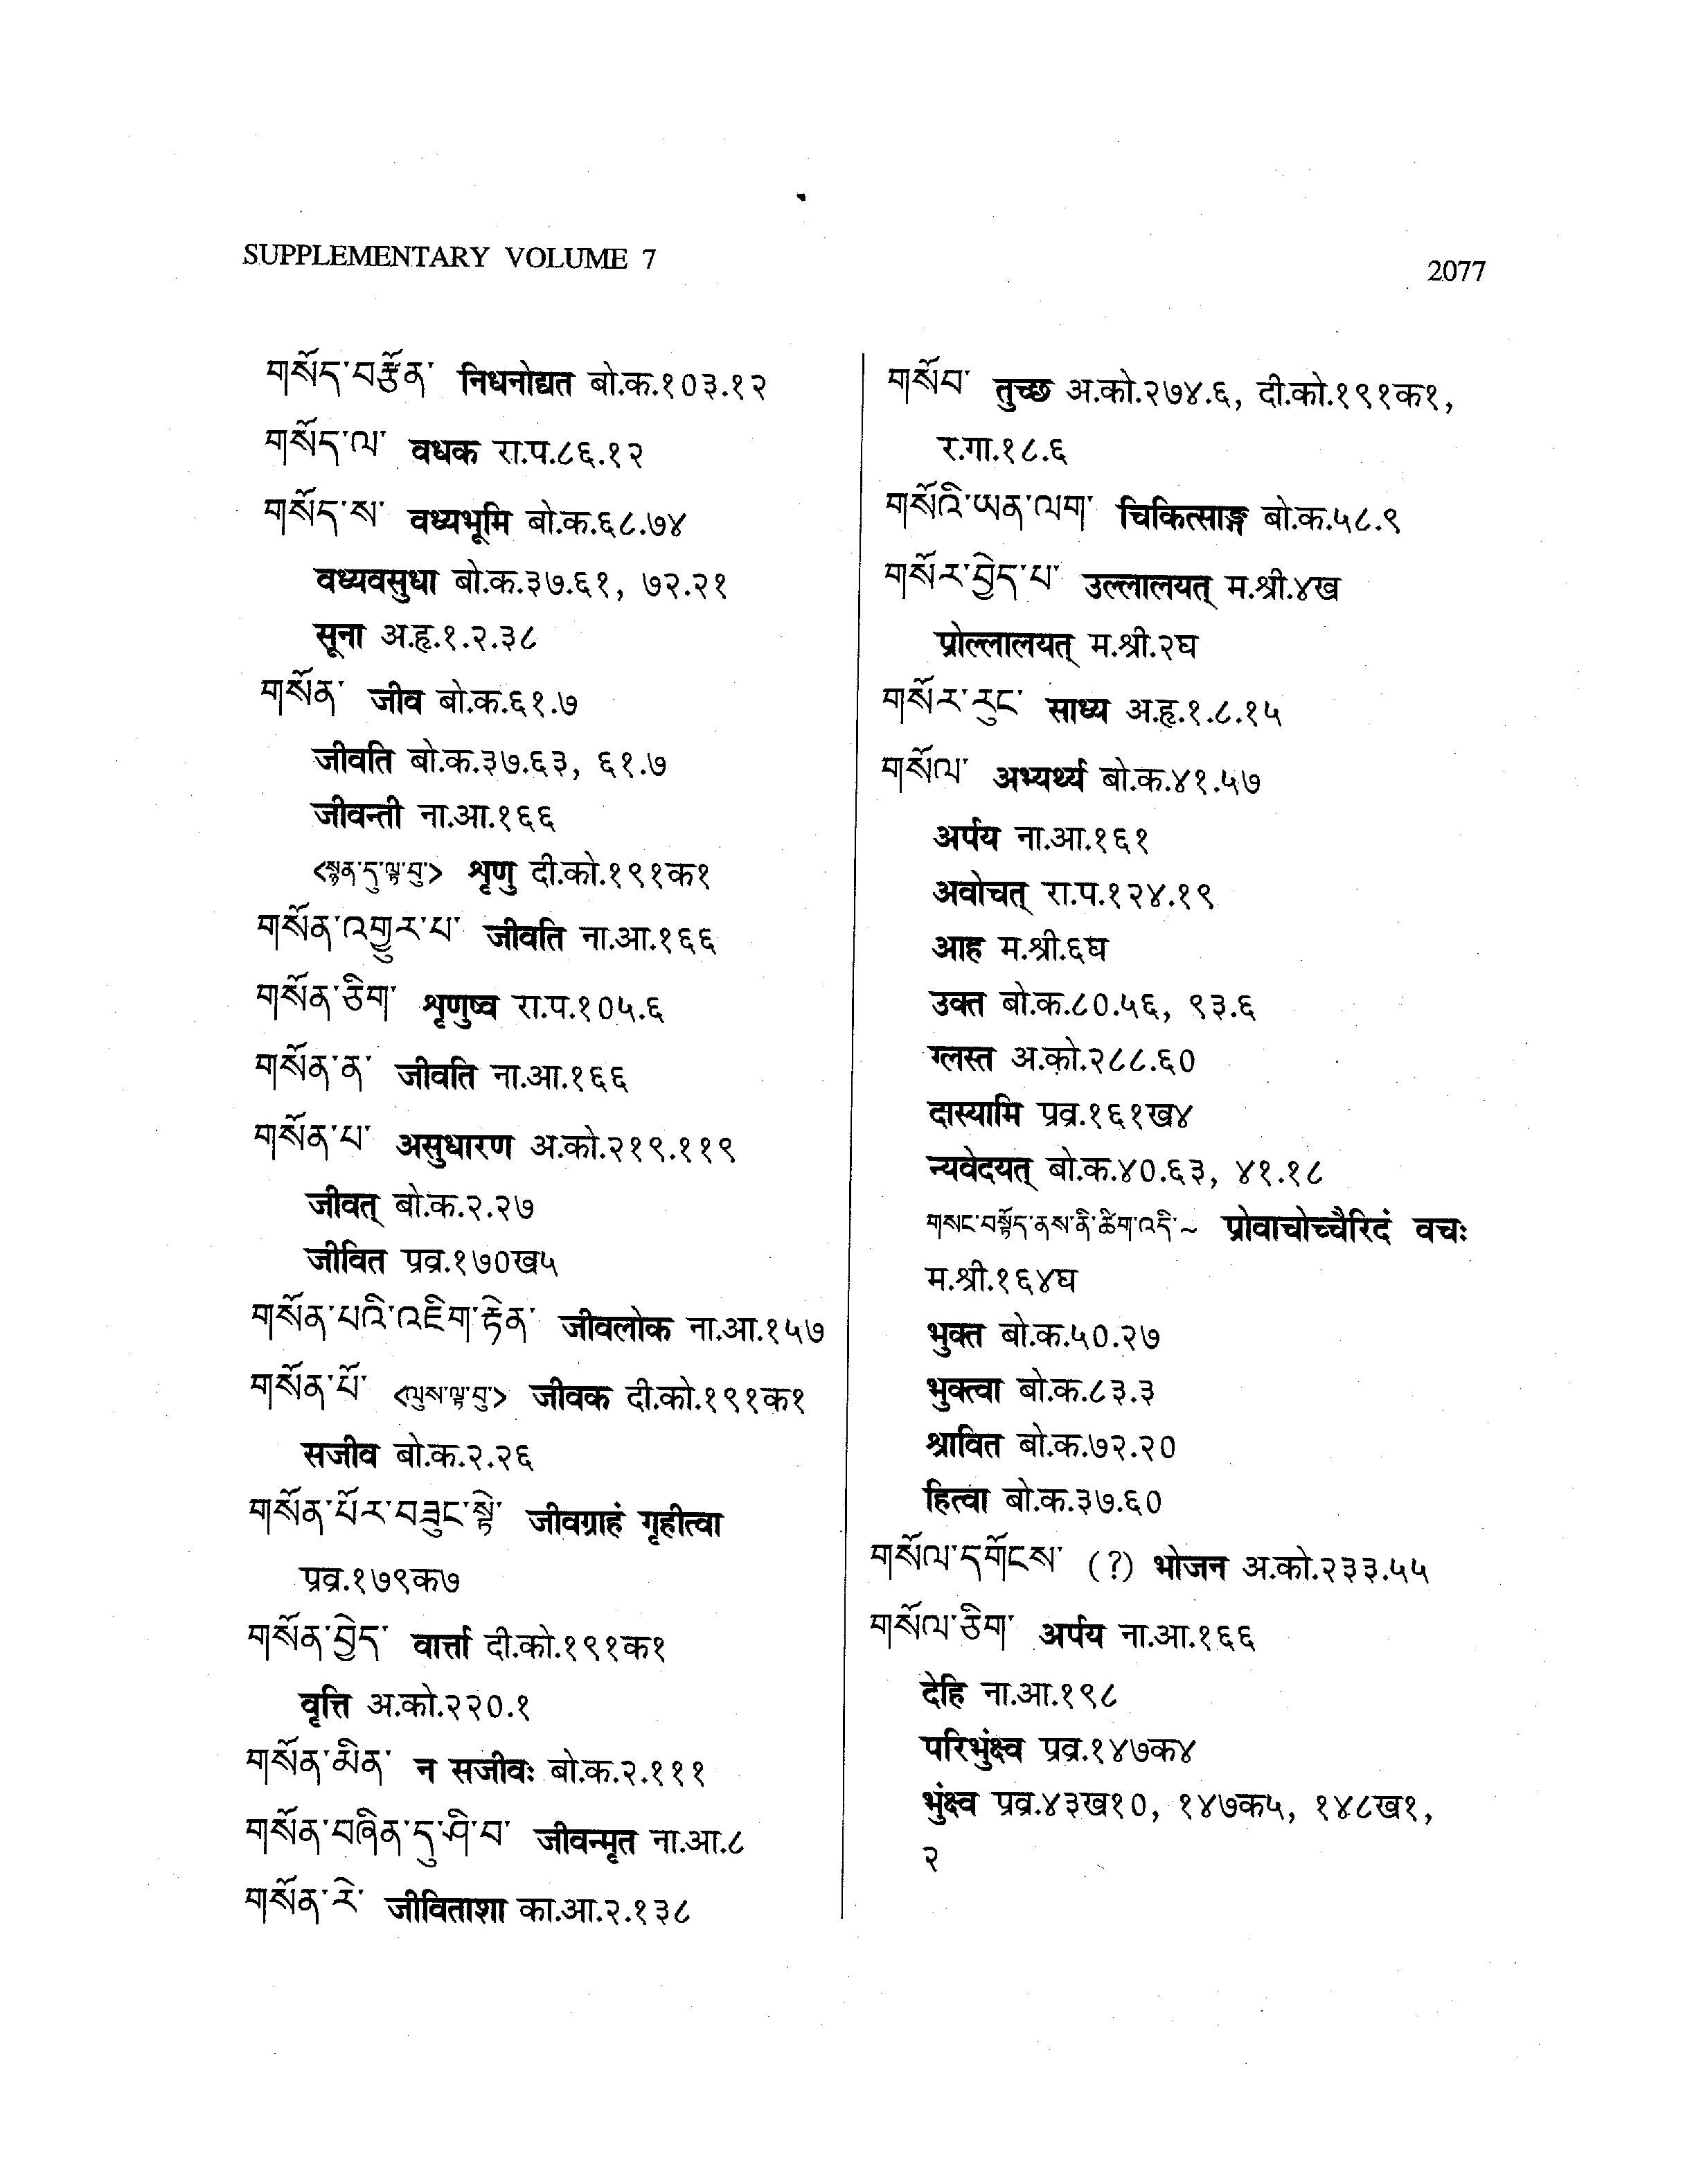 SUPPLEMENTARY VOLUME 7
2077
གསོད་བརྩོན་ निधनोद्यत बो.क.१०३.१२
གསོད་ལ་ वधक रा.प.८६.१२
གསོད་ས་ वध्यभूमि बो.क.६८.७४
वध्यवसुधा बो.क.३७.६१, ७२.२१
सूना अ.हृ.१.२.३८
གསོན་ जीव बो.क.६१.७
जीवति बो.क.३७.६३, ६१.७
जीवन्ती ना.आ.१६६
<སྙན་དུ་ལྟ་བུ> शृणु दी.को.१९१क१
གསོན་འགྱུར་པ་ जीवति ना.आ.१६६
གསོན་ཅིག་ शृणुष्व रा.प.१०५.६
གསོན་ན་ जीवति ना.आ.१६६
གསོན་པ་ असुधारण अ.को.२१९.११९
जीवत् बो.क.२.२७
जीवित प्रव्र.१७०ख५
གསོན་པའི་འཇིག་རྟེན་ जीवलोक ना.आ.१५७
གསོན་པོ་ <ལུས་ལྟ་བུ> जीवक दी.को.१९१क१
सजीव बो.क.२.२६
གསོན་པོར་བཟུང་སྟེ་ जीवग्राहं गृहीत्वा
प्रव्र.१७९क७
གསོན་བྱེད་ वार्त्ता दी.को.१९१क१
वृत्ति अ.को.२२०.१
གསོན་མིན་ न सजीवः बो.क.२.१११
གསོན་བཞིན་དུ་ཤི་བ་ जीवन्मृत ना.आ.८
གསོན་རེ་ जीविताशा का.आ.२.१३८
གསོབ་ तुच्छ अ.को.२७४.६, दी.को.१९१क१,
र.गा.१८.६
གསོའི་ཡན་ལག་ चिकित्साङ्ग बो.क.५८.९
གསོར་བྱེད་པ་ उल्लालयत् म.श्री.४ख
प्रोल्लालयत् म.श्री.२घ
གསོར་རུང་ साध्य अ.हृ.१.८.१५
གསོལ་ अभ्यर्थ्य बो.क.४१.५७
अर्पय ना.आ.१६१
अवोचत् रा.प.१२४.१९
आह म.श्री.६घ
उक्त बो.क.८०.५६, ९३.६
ग्लस्त अ.को.२८८.६०
दास्यामि प्रव्र.१६१ख४
न्यवेदयत् बो.क.४०.६३, ४१.१८
གསང་བསྟོད་ནས་ནི་ཚིག་འདི་~ प्रोवाचोच्चैरिदं वचः
म.श्री.१६४घ
भुक्त बो.क.५०.२७
भुक्त्वा बो.क.८३.३
श्रावित बो.क.७२.२०
हित्वा बो.क.३७.६०
གསོལ་དགོངས་ (?) भोजन अ.को.२३३.५५
གསོལ་ཅིག་ अर्पय ना.आ.१६६
देहि ना.आ.१९८
परिभुंक्ष्व प्रव्र.१४७क४
भुंक्ष्व प्रव्र.४३ख१०, १४७क५, १४८ख१,
२